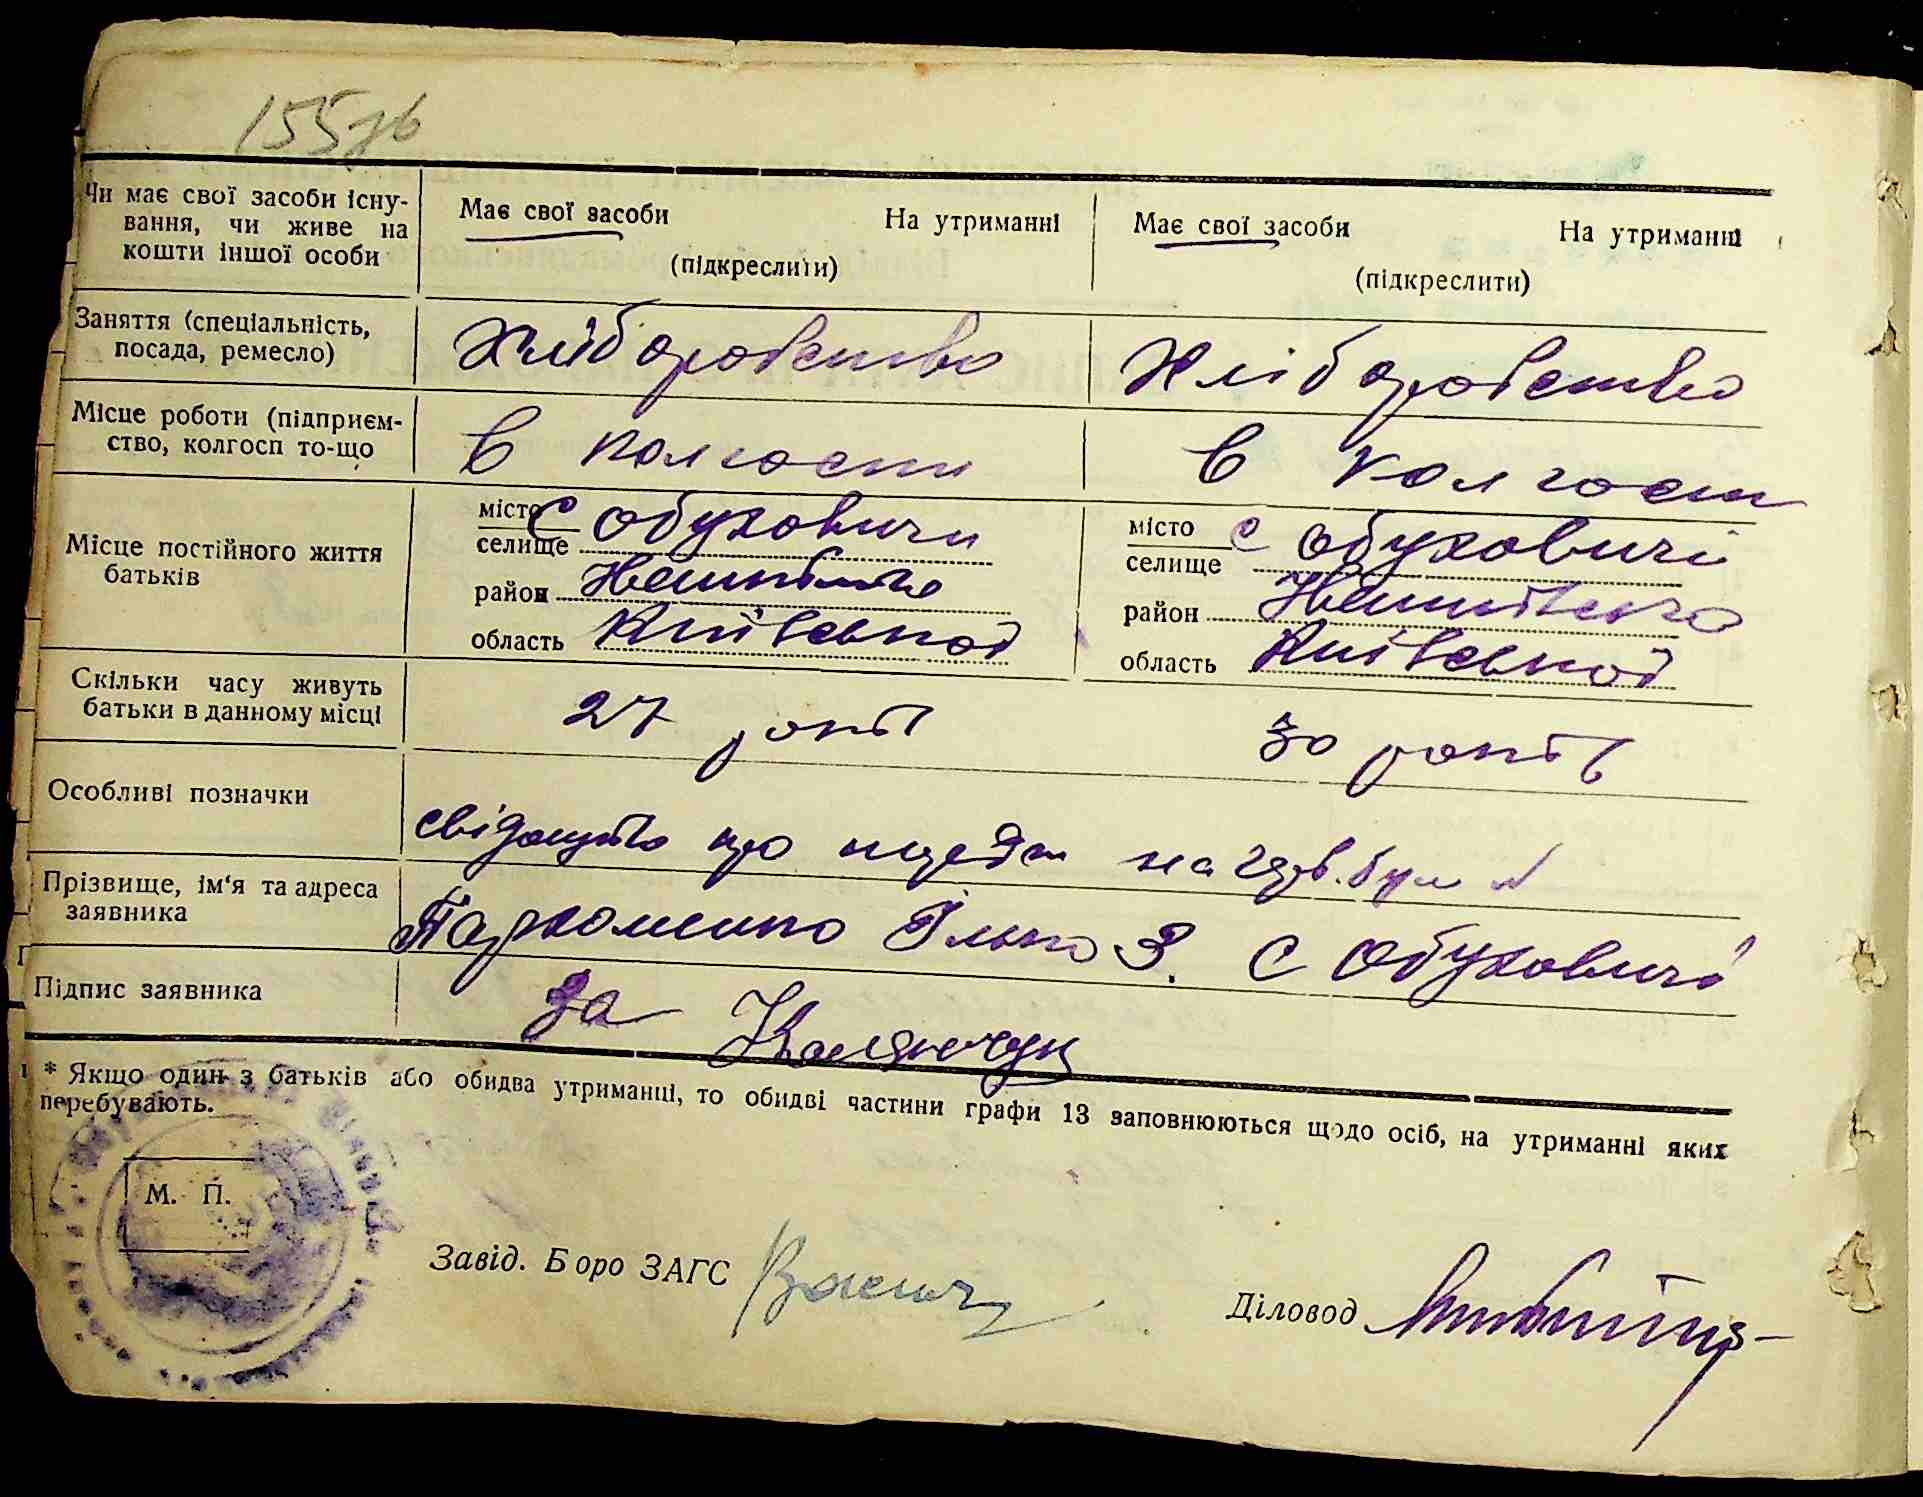 155зв
Чи має свої засоби існу-
вання, чи живе на
кошти іншої особи
Має свої засоби На утриманні
(підкреслити)
Має свої засоби На утриманні
(підкреслити)
Заняття (спеціальність,
посада, ремесло)
Хліборобство
Хліборобство
Місце роботи (підприєм-
ство, колгосп то-що
В колгоспи
В колгосп
Місце постійного життя
батьків
місто
селище С Обуховичи
район
область Київської
місто
селище С Обуховичі
район
область Київської
Скільки часу живуть
батьки в данному місці
27 років
30 років
Особливі позначки
свідоцтво про на
Прізвище, ім'я та адреса
заявника
Пархоменко Ілько З. С Обуховичі
Підпис заявника
За
* Якщо один з батьків або обидва утриманці, то обидві частини графи 13 заповнюються щодо осіб, на утриманні яких
перебувають.
М. П.
Завід. Бюро ЗАГС
Діловод